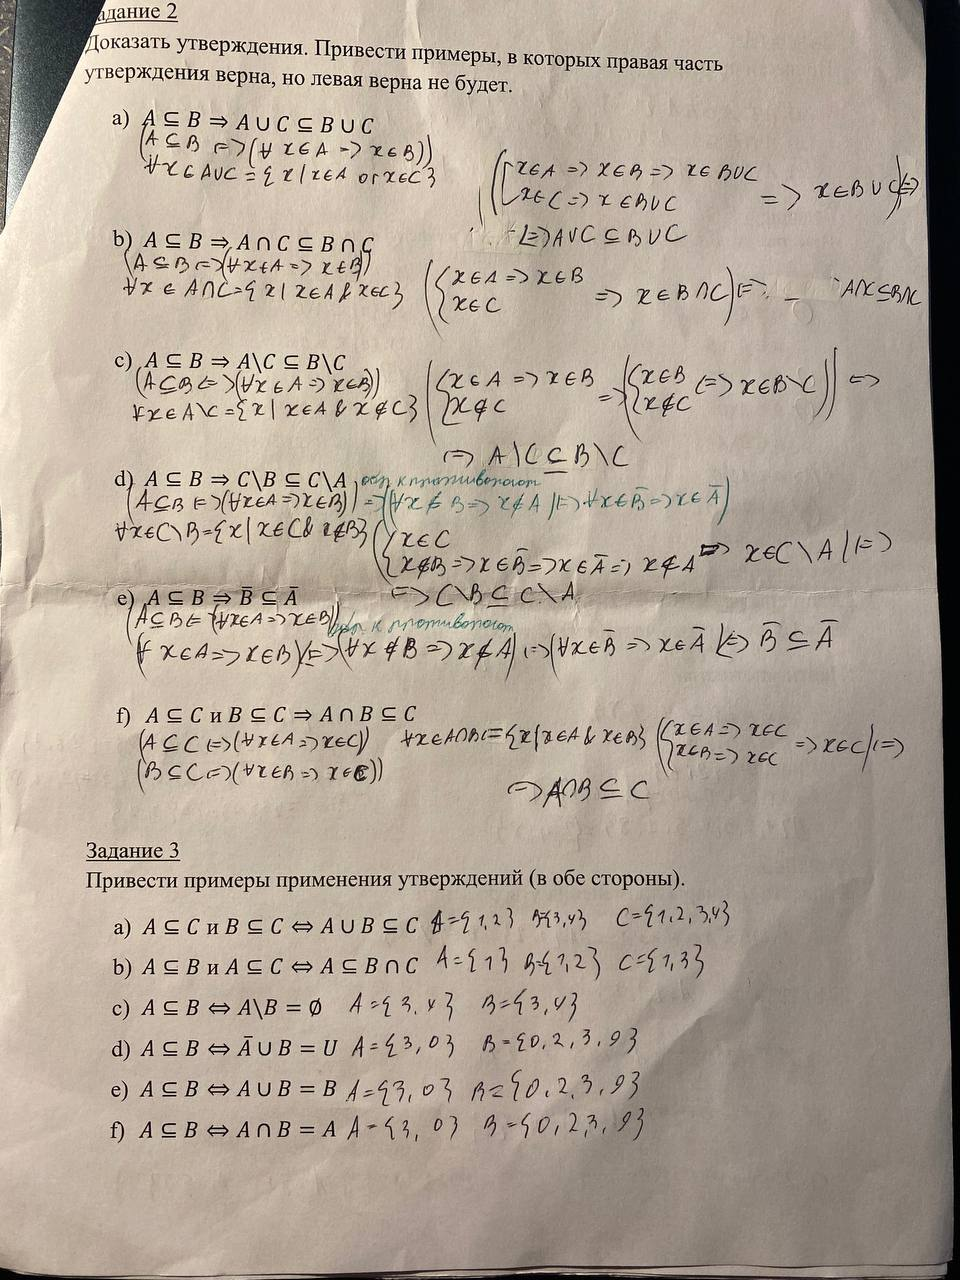 адание 2
Доказать утверждения. Привести примеры, в которых правая часть
утверждения верна, но левая верна не будет.
a) A ⊆ B ⇒ A ∪ C ⊆ B ∪ C
(A ⊆ B ⇔ (∀ x∈A => x∈B))
∀x∈A∪C = {x | x∈A or x∈C}
([x∈A => x∈B => x∈B∪C
x∈C => x∈B∪C
=> x∈B∪C) ⇔
⇔ A∪C ⊆ B∪C
b) A ⊆ B ⇒ A ∩ C ⊆ B ∩ C
(A ⊆ B ⇔ (∀x∈A => x∈B))
∀x ∈ A∩C = {x | x∈A & x∈C}
({x∈A => x∈B
x∈C
=> x∈B∩C) ⇔
A∩C⊆B∩C
c) A ⊆ B ⇒ A\C ⊆ B\C
(A⊆B ⇔ (∀x∈A => x∈B))
∀x∈A\C = {x | x∈A & x∉C}
({x∈A => x∈B
x∉C
=> ({x∈B
x∉C
⇔ x∈B\C)) ⇔
⇔ A\C ⊆ B\C
d) A ⊆ B ⇒ C\B ⊆ C\A
к противополож
(A⊆B ⇔ (∀x∈A => x∈B)) => (∀x∉B => x∉A) ⇔ ∀x∈B̄ => x∈Ā)
∀x∈C\B = {x | x∈C & x∉B}
({x∈C
x∉B => x∈B̄ => x∈Ā => x∉A => x∈C\A) ⇔
⇔ C\B ⊆ C\A
e) A ⊆ B ⇒ B̄ ⊆ Ā
(A⊆B ⇔ (∀x∈A => x∈B))
к противополож
(∀ x∈A => x∈B) ⇔ (∀x∉B => x∉A) ⇔ (∀x∈B̄ => x∈Ā) ⇔ B̄ ⊆ Ā
f) A ⊆ C и B ⊆ C ⇒ A ∩ B ⊆ C
(A⊆C ⇔ (∀x∈A => x∈C)) ∀x∈A∩B = {x | x∈A & x∈B} ({x∈A => x∈C
x∈B => x∈C
=> x∈C) ⇔
(B⊆C ⇔ (∀x∈B => x∈C))
⇔ A∩B ⊆ C
Задание 3
Привести примеры применения утверждений (в обе стороны).
a) A ⊆ C и B ⊆ C ⇔ A ∪ B ⊆ C A={1,2} B={3,4} C={1,2,3,4}
b) A ⊆ B и A ⊆ C ⇔ A ⊆ B ∩ C A={1} B={1,2} C={1,3}
c) A ⊆ B ⇔ A\B = ∅ A={3,4} B={3,4}
d) A ⊆ B ⇔ Ā ∪ B = U A={3,0} B={0,2,3,9}
e) A ⊆ B ⇔ A ∪ B = B A={3,0} B={0,2,3,9}
f) A ⊆ B ⇔ A ∩ B = A A={3,0} B={0,2,3,9}